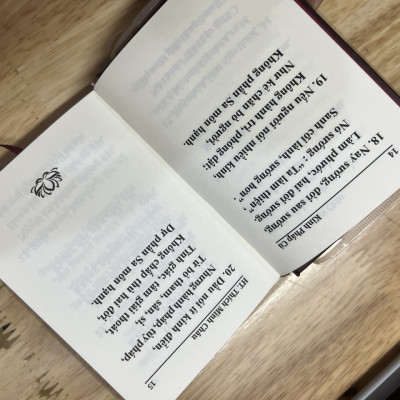 14
Kinh Pháp Cú
18. Nay sướng, đời sau sướng
Làm phước, hai đời sướng
Nó sướng : "Ta làm thiện"
Sanh cõi lành, sướng hơn".
19. Nếu người nói nhiều kinh,
Không hành trì, phóng dật;
Như kẻ chăn bò người,
Không phần Sa môn hạnh.
HT. Thích Minh Châu
15
20. Dầu nói ít kinh điển,
Nhưng hành pháp, tùy pháp,
Từ bỏ tham, sân, si,
Tỉnh giác, tâm giải thoát,
Không chấp thủ hai đời,
Dự phần Sa môn hạnh.